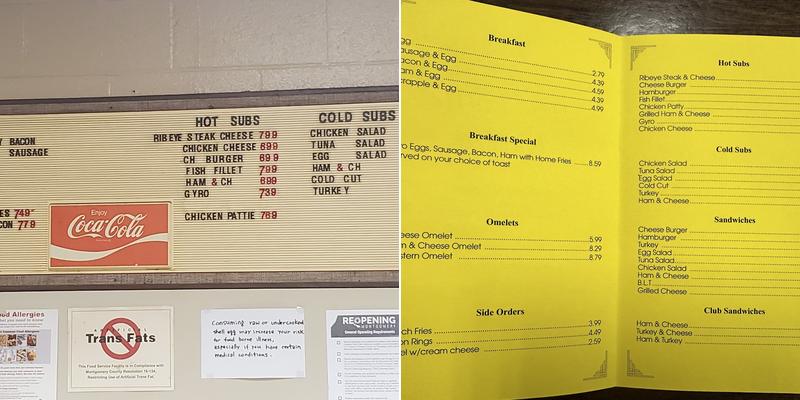 HOT SUBS
COLD SUBS
BACON
SAUSAGE
RIBEYE STEAK CHEESE 799
CHICKEN CHEESE 699
CH BURGER 699
FISH FILLET 799
HAM & CH 699
GYRO 739
CHICKEN PATTIE 769
CHICKEN SALAD
TUNA SALAD
EGG SALAD
HAM & CH
COLD CUT
TURKEY
749
779
Enjoy
Coca-Cola
Food Allergies
ARTIFICIAL
Trans Fats
This Food Service Facility is in Compliance with
Montgomery County Resolution 16-134,
Restricting Use of Artificial Trans Fat.
Consuming raw or undercooked
shell egg may increase your risk
for food borne illness,
especially if you have certain
medical conditions.
REOPENING
MONTGOMERY
General Operating Requirements
Breakfast
gg 2.79
ausage & Egg 4.39
acon & Egg 4.59
am & Egg 4.39
crapple & Egg 4.99
Breakfast Special
o Eggs, Sausage, Bacon, Ham with Home Fries 8.59
rved on your choice of toast
Omelets
eese Omelet 5.99
m & Cheese Omelet 8.29
stern Omelet 8.79
Side Orders
ch Fries 3.99
on Rings 4.49
el w/cream cheese 2.59
Hot Subs
Ribeye Steak & Cheese
Cheese Burger
Hamburger
Fish Fillet
Chicken Patty
Grilled Ham & Cheese
Gyro
Chicken Cheese
Cold Subs
Chicken Salad
Tuna Salad
Egg Salad
Cold Cut
Turkey
Ham & Cheese
Sandwiches
Cheese Burger
Hamburger
Turkey
Egg Salad
Tuna Salad
Chicken Salad
Ham & Cheese
B.L.T
Grilled Cheese
Club Sandwiches
Ham & Cheese
Turkey & Cheese
Ham & Turkey